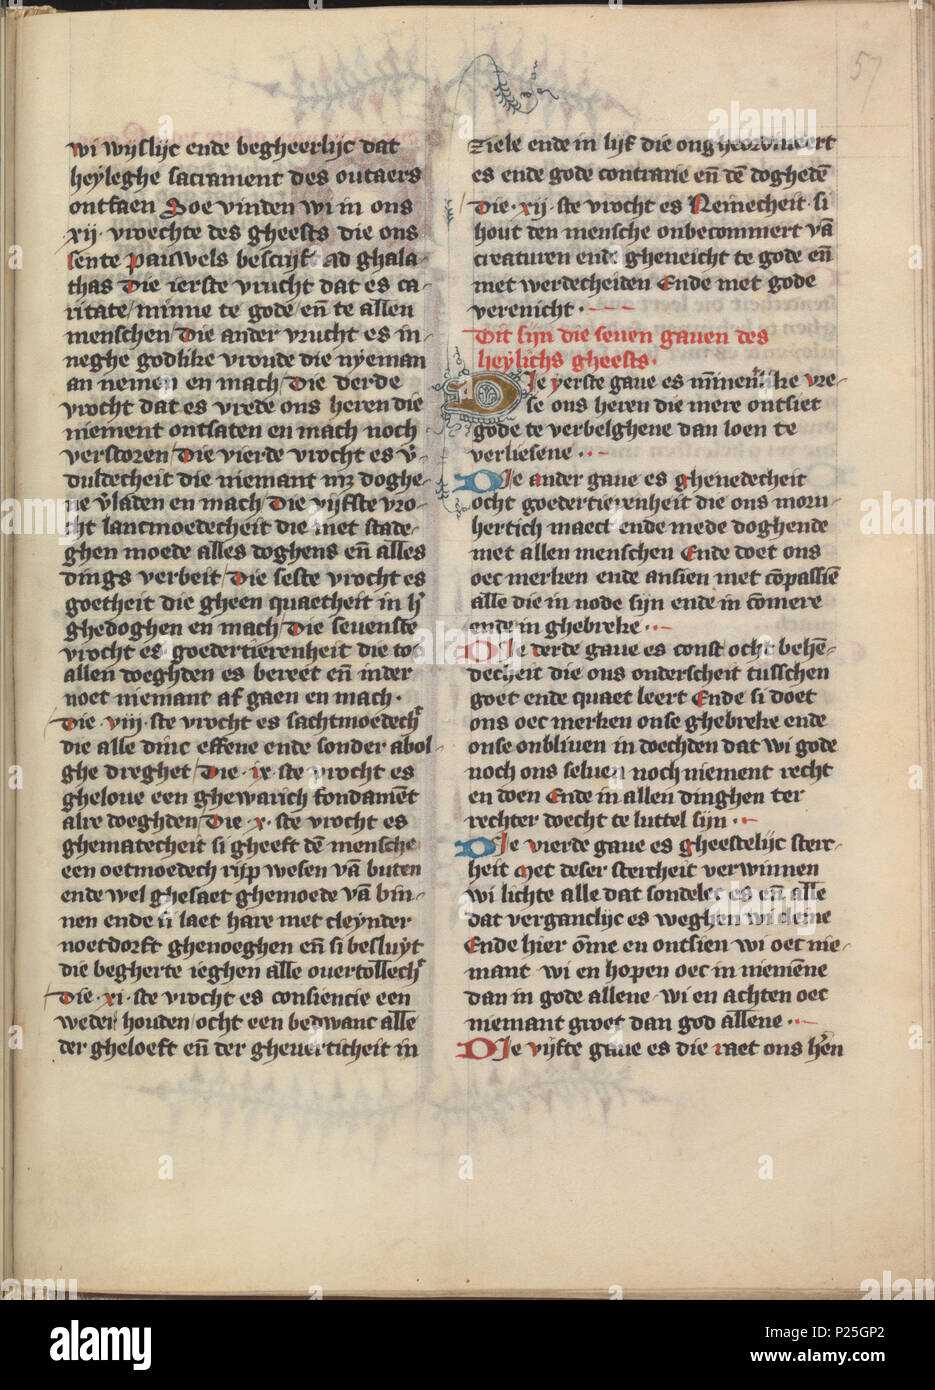 57
wi wijslijc ende begheerlijc dat
heyleghe sacrament des outaers
ontfaen Soe vinden wi in ons
xij· vroechte des gheests die ons
sente pauwels bescrijft ad ghala-
thas Die ierste vrucht dat es ca-
ritate/minne te gode/en̄ te allen
menschen Die ander vrucht es in-
neghe godlike vroude die nyeman
an nemen en mach/Die derde
vrocht dat es vrede ons heren die
niement ontsaten en mach noch
verstoren/Die vierde vrocht es v̄-
duldecheit die niemant doghe-
ne v̄laden en mach/Die vijfste vro-
cht lancmoedecheit die met stade-
ghen moede alles doghens en̄ alles
dings verbeit/Die seste vrocht es
goetheit die gheen quaetheit in
ghedoghen en mach/Die seuenste
vrocht es goedertierenheit die tot
allen doeghden es bereet en̄ in der
noet niemant af gaen en mach·
Die·viij·ste vrocht es sachtmoedech
die alle dinc effene ende sonder abol-
ghe dreghet/Die·ix·ste vrocht es
gheloue een ghewarich fondamēt
alre doeghden/Die·x·ste vrocht es
ghematecheit si gheeft dē mensche
een oetmoedech rijp wesen vā buten
ende wel ghesaet ghemoede vā bin-
nen ende si laet hare met cleynder
noetdorft ghenoeghen en̄ si besluyt
die begherte ieghen alle ouertollech
Die·xi·ste vrocht es consiencie een
weder houden/ocht een bedwanc alle
der gheloeft en̄ der gheuerticheit in
Ziele ende in lijf die ongheordineert
es ende gode contrarie en̄ dē doghedē
Die·xij·ste vrocht es Reinecheit·si
hout den mensche onbecommert vā
creaturen ende gheneicht te gode en̄
met werdecheiden Ende met gode
verenicht·
Dit sijn die seuen gauen des
heylichs gheests·
Die yerste gaue es vre-
se ons heren die mere ontsiet
gode te verbelghene dan loen te
verliesene··
Die ander gaue es ghenedecheit
ocht goedertierenheit die ons moru-
hertich maect ende mede doghende
met allen menschen Ende doet ons
oec merken ende ansien met cōpassiē
alle die in node sijn ende in cōmere
ende in ghebreke··
Die derde gaue es const ocht behē-
decheit die ons onderscheit tusschen
goet ende quaet leert Ende si doet
ons oec merken onse ghebreke ende
onse onbliuen in doechden dat wi gode
noch ons seluen noch niement recht
en doen Ende in allen dinghen ter
rechter doecht te luttel sijn··
Die vierde gaue es gheestelijc sterc-
heit Met deser stercheit verwinnen
wi lichte alle dat sondelec es en̄ alle
dat verganclijc es weghen wi cleine
Ende hier ōme en ontsien wi oec nie-
mant wi en hopen oec in niemēne
dan in gode allene·wi en achten oec
niemant groet dan god allene··
Die vijfte gaue es die raet ons hren
alamy
alamy
Image ID: P25GP2
www.alamy.com